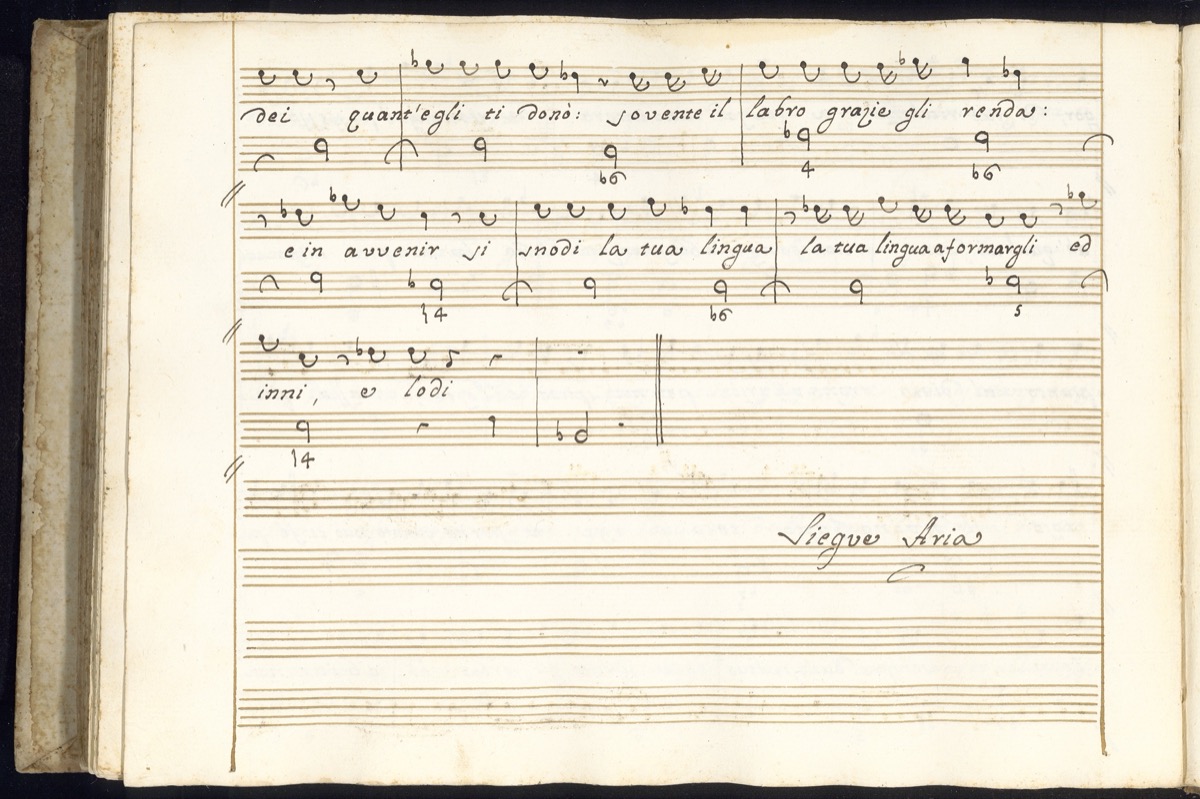 dei quant'egli ti donò: sovente il labro grazie gli renda:
b6 4 b6
e in avvenir si snodi la tua lingua la tua lingua a formargli ed
14 b6 5
inni, e lodi
14
Siegue Aria